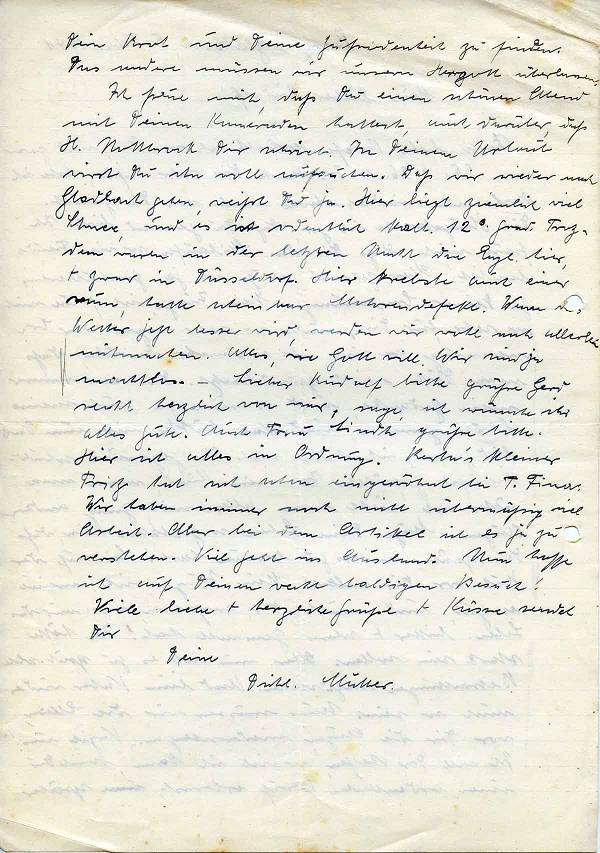 Dein Brot und Deine Zufriedenheit zu finden.
Das andere müssen wir unserm Herrgott überlassen.
Ich freue mich, daß Du einen schönen Abend
mit Deinen Kameraden hattest, auch darüber, daß
H. Dir schrieb. In Deinem Urlaub
wirst Du ihn wohl aufsuchen. Daß wir wieder nach
Gladbach gehen, weißt Du ja. Hier liegt ziemlich viel
Schnee, und es ist ordentlich kalt. 12° Grad Trotz-
dem waren in der letzten Nacht die Engl. hier,
+ zwar in Düsseldorf. Hier krebste auch einer
rum, hatte scheinbar Motorendefekt. Wenn d.
Wetter jetzt besser wird, werden wir wohl noch allerlei
mitmachen. Alles, wie Gott will. Wir sind ja
machtlos. – Lieber Rudolf bitte grüße Gerd
recht herzlich von mir, sage, ich wünsche ihm
alles Gute. Auch Frau Lindh grüße bitte.
Hier ist alles in Ordnung. kleiner
Fritz hat sich schon eingewöhnt bei T. Fina.
Wir haben immer noch übermäßig viel
Arbeit. Aber bei dem Artikel ist es ja zu
verstehen. Viel geht ins Ausland. Nun hoffe
ich auf Deinen recht baldigen Besuch!
Viele liebe + herzliche Grüße + Küsse sendet
Dir
Deine
Dichl. Mutter.